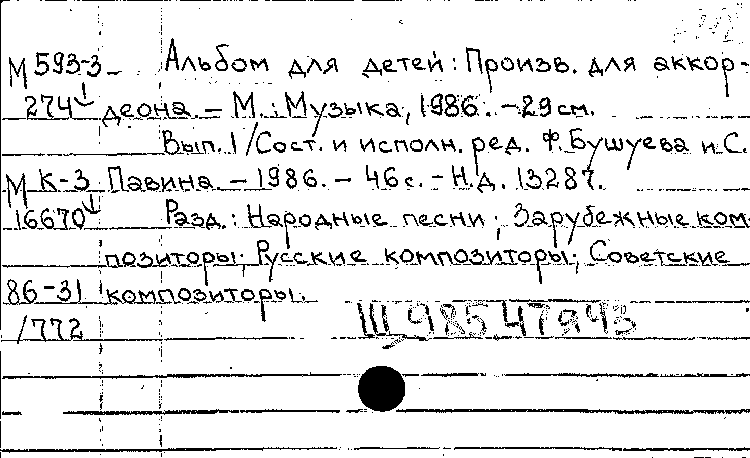 М 593-3 Альбом для детей: Произв. для аккор-
274 деона. — М.: Музыка, 1986. — 29 см.
Вып. 1 / Сост. и исполн. ред. Ф. Бушуева и С.
М К-3 Павина. — 1986. — 46 с. — Н.д. 13287.
16670 Разд.: Народные песни; Зарубежные ком-
позиторы; Русские композиторы; Советские
86-31 композиторы.
/772 Щ 985.47я93